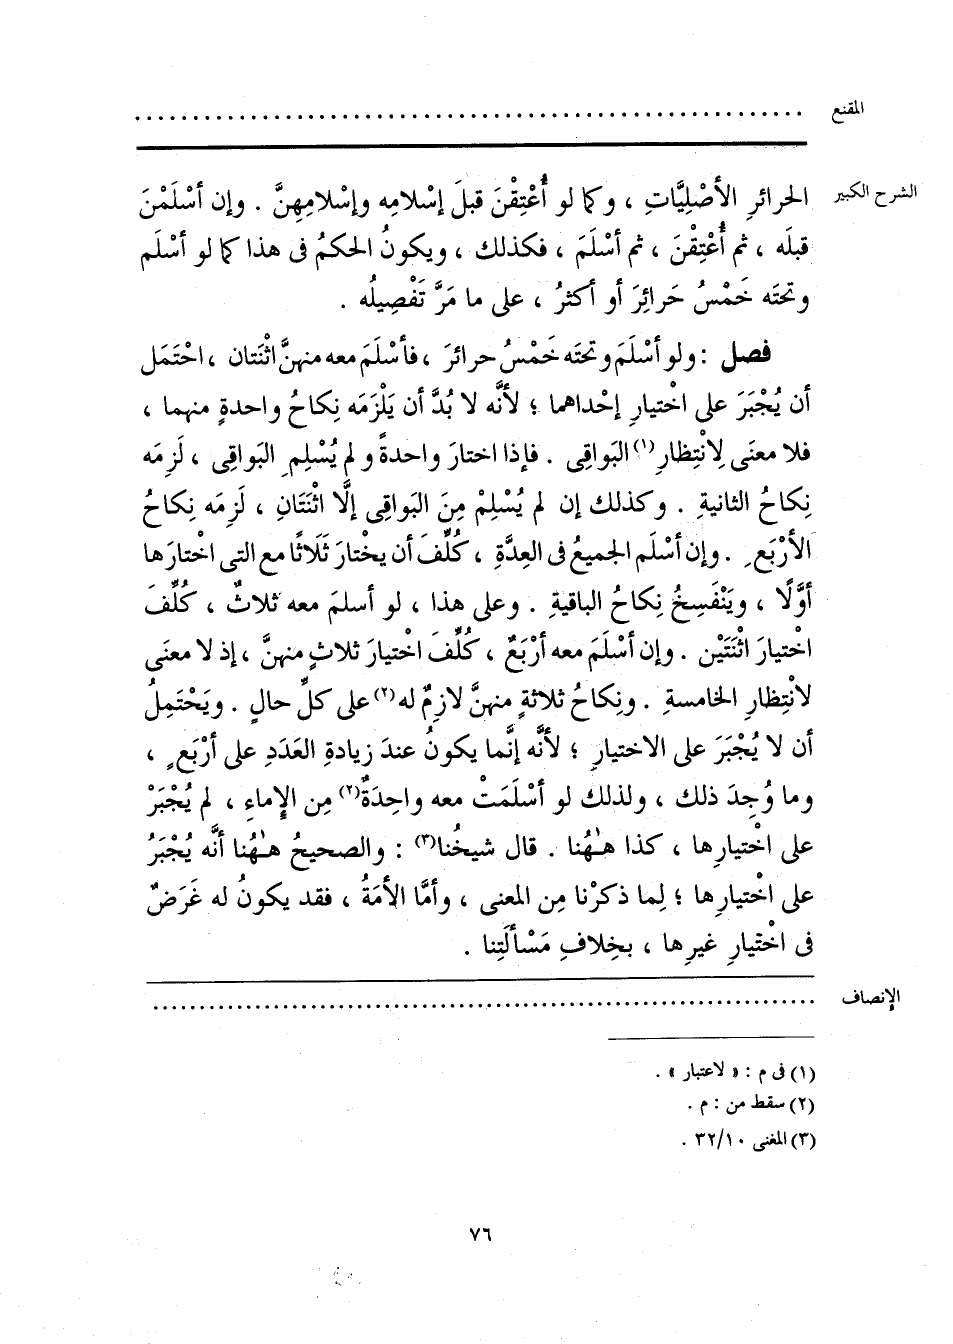 المقنع ............................................................
الشرح الكبير الحرائرِ الأصْلِيَّاتِ ، وكما لو أُعْتِقْنَ قبلَ إسْلامِه وإسْلامِهِنَّ . وإن أسْلَمْنَ
قبلَه ، ثم أُعْتِقْنَ ، ثم أسْلَمَ ، فكذلك ، ويكونُ الحكمُ فى هذا كما لو أسْلَم
وتحتَه خَمْسُ حَرائِرَ أو أكثرُ ، على ما مَرَّ تَفْصِيلُه .
فصل : ولو أسْلَمَ وتحتَه خَمْسُ حرائرَ ، فأسْلَمَ معه منهنَّ اثْنَتان ، احْتَمَل
أن يُجْبَرَ على اخْتيارِ إحْداهما ؛ لأنَّه لا بُدَّ أن يَلْزَمَه نِكاحُ واحدةٍ منهما ،
فلا معنَى لِانْتِظارِ(١) البَواقِى . فإذا اختارَ واحدةً ولم يُسْلِمِ البَواقِى ، لَزِمَه
نِكاحُ الثانيةِ . وكذلك إن لم يُسْلِمْ مِنَ البَواقِى إلَّا اثْنَتَانِ ، لَزِمَه نِكاحُ
الأرْبَعِ . وإن أسْلَم الجميعُ فى العِدَّةِ ، كُلِّفَ أن يختارَ ثَلَاثًا مع التى اخْتارَها
أوَّلًا ، ويَنْفَسِخُ نِكاحُ الباقيةِ . وعلى هذا ، لو أسلمَ معه ثلاثٌ ، كُلِّفَ
اخْتيارَ اثْنَتَيْن . وإن أسْلَمَ معه أرْبَعٌ ، كُلِّفَ اخْتيارَ ثلاثٍ منهنَّ ، إذ لا معنَى
لانْتِظارِ الخامسةِ . ونِكاحُ ثلاثةٍ منهنَّ لازِمٌ له(٢) على كلِّ حالٍ . ويَحْتَمِلُ
أن لا يُجْبَرَ على الاختيارِ ؛ لأنَّه إنَّما يكونُ عندَ زيادةِ العَدَدِ على أرْبَعٍ ،
وما وُجِدَ ذلك ، ولذلك لو أسْلَمَتْ معه واحِدَةٌ(٢) مِن الإِماءِ ، لم يُجْبَرْ
على اخْتيارِها ، كذا هٰهُنا . قال شيخُنا(٣) : والصحيحُ هٰهُنا أنَّه يُجْبَرُ
على اخْتيارِها ؛ لِما ذكرْنا مِن المعنى ، وأمَّا الأمَةُ ، فقد يكونُ له غَرَضٌ
فى اخْتيارِ غيرِها ، بخِلافِ مَسْألَتِنا .
الإنصاف ............................................................
(١) فى م : « لاعتبار » .
(٢) سقط من : م .
(٣) المغنى ٣٢/١٠ .
٧٦